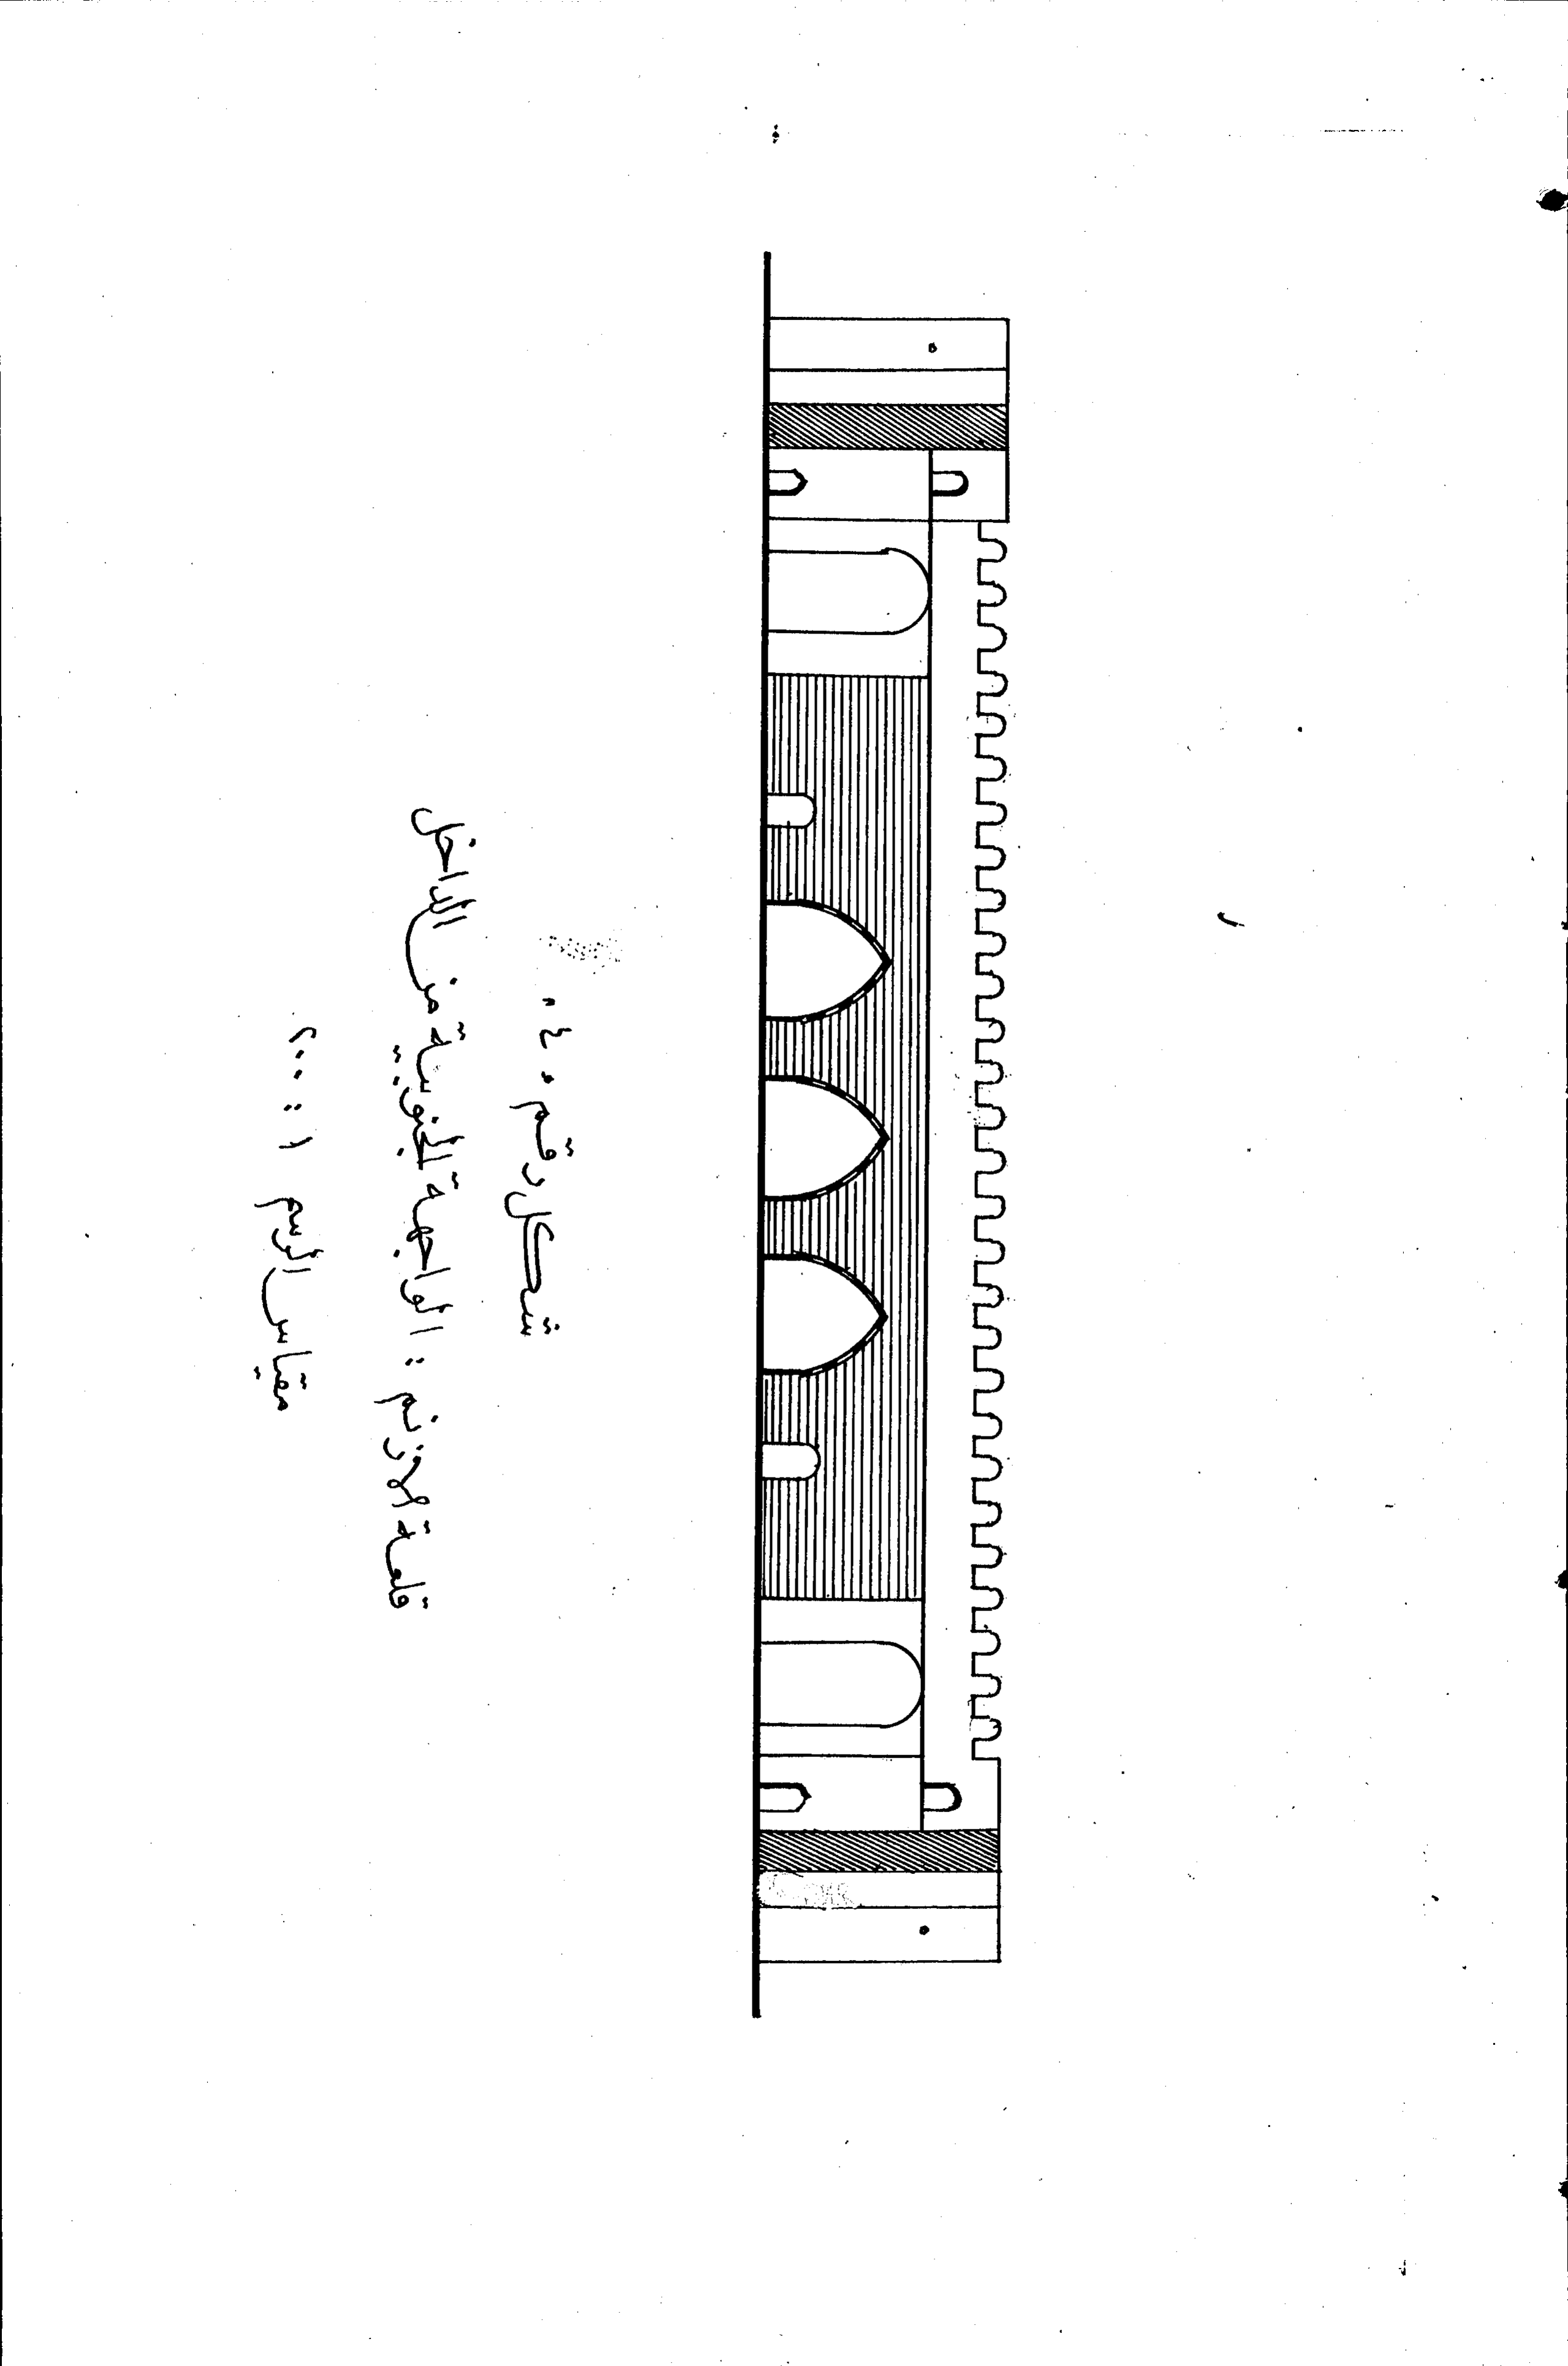 شكل رقم ٤٠
قلعة الازنم : الواجهة الجنوبية من الداخل
مقياس الرسم ١ : ٢٠٠